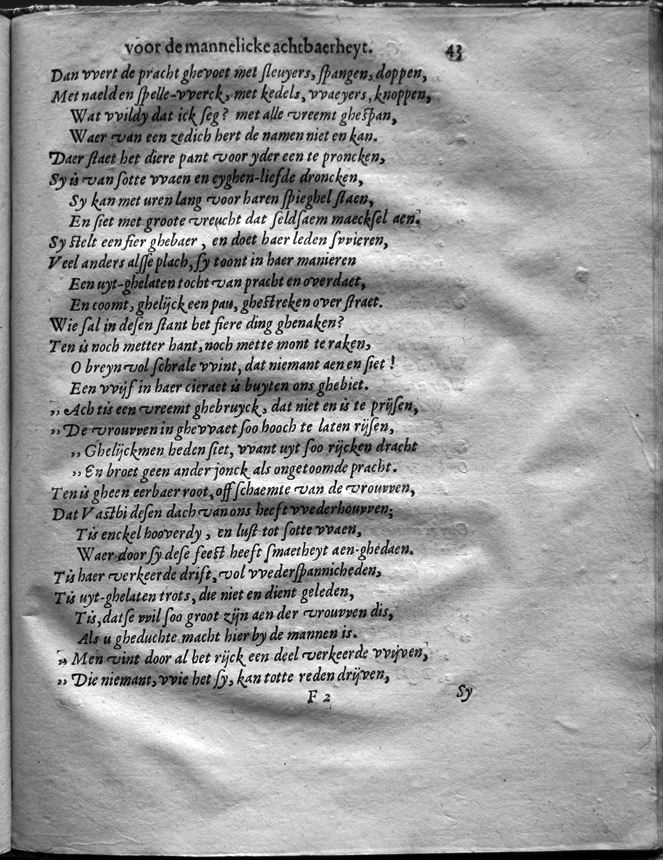 voor de mannelicke achtbaerheyt. 43
Dan vvert de pracht ghevoet met sleuyers, spangen, doppen,
Met naeld en spelle-vverck, met kedels, vvaeyers, knoppen,
Wat vvildy dat ick seg? met alle vreemt ghespan,
Waer van een zedich hert de namen niet en kan.
Daer staet het diere pant voor yder een te proncken,
Sy is van sotte vvaen en eyghen-liefde droncken,
Sy kan met uren lang voor haren spieghel staen,
En siet met groote vreucht dat seldsaem maecksel aen.
Sy stelt een fier ghebaer, en doet haer leden svvieren,
Veel anders alsse plach, sy toont in haer manieren
Een uyt-ghelaten tocht van pracht en overdaet,
En coomt, ghelijck een pau, ghestreken over straet.
Wie sal in desen stant het fiere ding ghenaken?
Ten is noch metter hant, noch mette mont te raken,
O breyn vol schrale vvint, dat niemant aen en siet!
Een vvijf in haer cieraet is buyten ons ghebiet.
„ Ach tis een vreemt ghebruyck, dat niet en is te prijsen,
„ De vrouvven in ghevvaet soo hooch te laten rijsen,
„ Ghelijckmen heden siet, vvant uyt soo rijcken dracht
„ En broet geen ander jonck als ongetoomde pracht.
Ten is gheen eerbaer root, off schaemte van de vrouvven,
Dat Vasthi desen dach van ons heeft vvederhouvven;
Tis enckel hooverdy, en lust tot sotte vvaen,
Waer door sy dese feest heeft smaetheyt aen-ghedaen.
Tis haer verkeerde drift, vol vvederspannicheden,
Tis uyt-ghelaten trots, die niet en dient geleden,
Tis, datse vvil soo groot zijn aen der vrouvven dis,
Als u gheduchte macht hier by de mannen is.
„ Men vint door al het rijck een deel verkeerde vvijven,
„ Die niemant, vvie het sy, kan totte reden drijven,
F 2 Sy